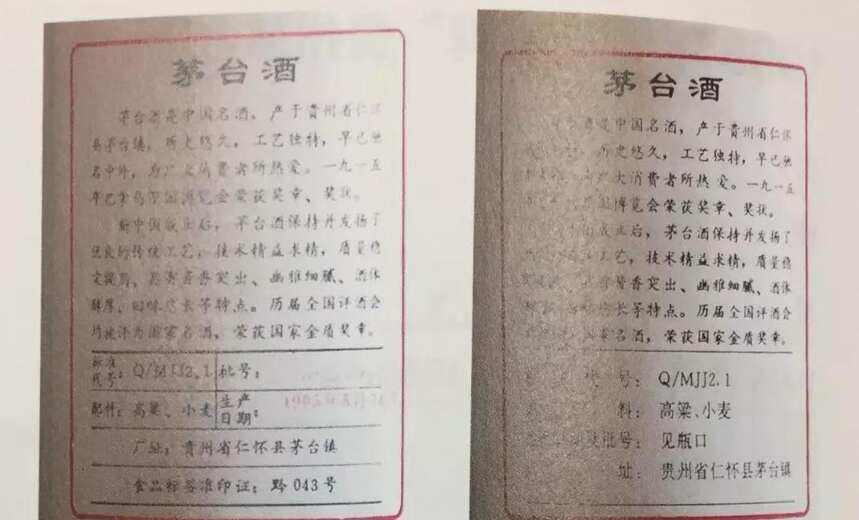 茅台酒
茅台酒是中国名酒，产于贵州省仁怀
县茅台镇，历史悠久，工艺独特，早已驰
名中外，为广大消费者所热爱。一九一五
年巴拿马万国博览会荣获奖章、奖状。
新中国成立后，茅台酒保持并发扬了
优良的传统工艺，技术精益求精，质量稳
定提高，具有酱香突出、幽雅细腻、酒体
醇厚、回味悠长等特点。历届全国评酒会
均被评为国家名酒，荣获国家金质奖章。
标准代号：Q/MJJ2.1 批号：
配料：高粱、小麦 生产日期：
厂址：贵州省仁怀县茅台镇
食品标签准印证：黔043号
茅台酒
是中国名酒，产于贵州省仁怀
历史悠久，工艺独特，早已驰
广大消费者所热爱。一九一五
国博览会荣获奖章、奖状。
成立后，茅台酒保持并发扬了
工艺，技术精益求精，质量稳
酱香突出、幽雅细腻、酒体
长等特点。历届全国评酒会
家名酒，荣获国家金质奖章。
号：Q/MJJ2.1
料：高粱、小麦
批号：见瓶口
址：贵州省仁怀县茅台镇